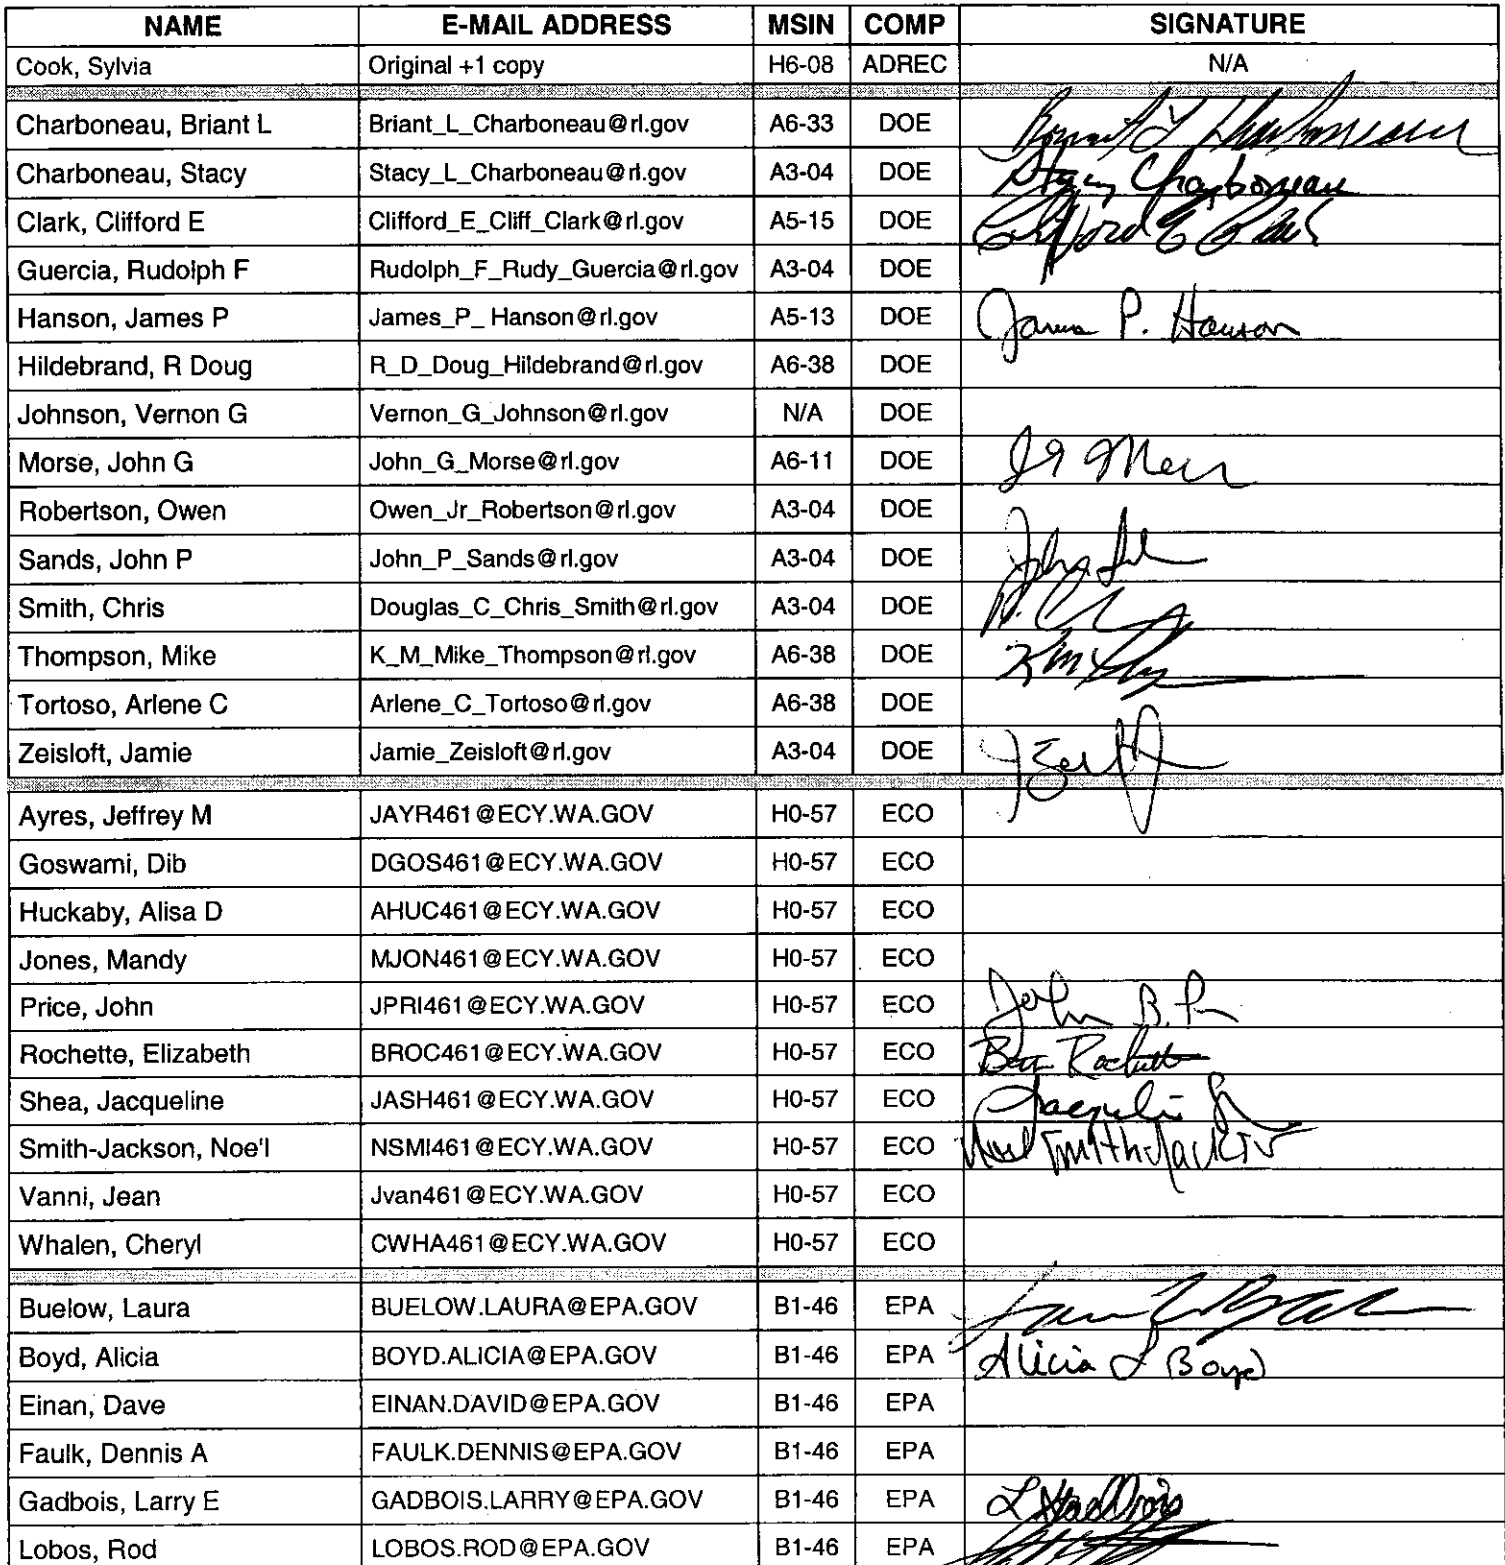 NAME E-MAIL ADDRESS MSIN COMP SIGNATURE
Cook, Sylvia Original +1 copy H6-08 ADREC N/A
Charboneau, Briant L Briant_L_Charboneau@rl.gov A6-33 DOE Briant L Charboneau
Charboneau, Stacy Stacy_L_Charboneau@rl.gov A3-04 DOE Stacy Charboneau
Clark, Clifford E Clifford_E_Cliff_Clark@rl.gov A5-15 DOE Clifford E Clark
Guercia, Rudolph F Rudolph_F_Rudy_Guercia@rl.gov A3-04 DOE
Hanson, James P James_P_ Hanson@rl.gov A5-13 DOE James P. Hanson
Hildebrand, R Doug R_D_Doug_Hildebrand@rl.gov A6-38 DOE
Johnson, Vernon G Vernon_G_Johnson@rl.gov N/A DOE
Morse, John G John_G_Morse@rl.gov A6-11 DOE
Robertson, Owen Owen_Jr_Robertson@rl.gov A3-04 DOE
Sands, John P John_P_Sands@rl.gov A3-04 DOE John
Smith, Chris Douglas_C_Chris_Smith@rl.gov A3-04 DOE
Thompson, Mike K_M_Mike_Thompson@rl.gov A6-38 DOE
Tortoso, Arlene C Arlene_C_Tortoso@rl.gov A6-38 DOE
Zeisloft, Jamie Jamie_Zeisloft@rl.gov A3-04 DOE
Ayres, Jeffrey M JAYR461@ECY.WA.GOV H0-57 ECO
Goswami, Dib DGOS461@ECY.WA.GOV H0-57 ECO
Huckaby, Alisa D AHUC461@ECY.WA.GOV H0-57 ECO
Jones, Mandy MJON461@ECY.WA.GOV H0-57 ECO
Price, John JPRI461@ECY.WA.GOV H0-57 ECO John B.
Rochette, Elizabeth BROC461@ECY.WA.GOV H0-57 ECO Rochette
Shea, Jacqueline JASH461@ECY.WA.GOV H0-57 ECO Jacqueline
Smith-Jackson, Noe'l NSMI461@ECY.WA.GOV H0-57 ECO Noel Smith-Jackson
Vanni, Jean Jvan461@ECY.WA.GOV H0-57 ECO
Whalen, Cheryl CWHA461@ECY.WA.GOV H0-57 ECO
Buelow, Laura BUELOW.LAURA@EPA.GOV B1-46 EPA
Boyd, Alicia BOYD.ALICIA@EPA.GOV B1-46 EPA Alicia L Boyd
Einan, Dave EINAN.DAVID@EPA.GOV B1-46 EPA
Faulk, Dennis A FAULK.DENNIS@EPA.GOV B1-46 EPA
Gadbois, Larry E GADBOIS.LARRY@EPA.GOV B1-46 EPA L E Gadbois
Lobos, Rod LOBOS.ROD@EPA.GOV B1-46 EPA